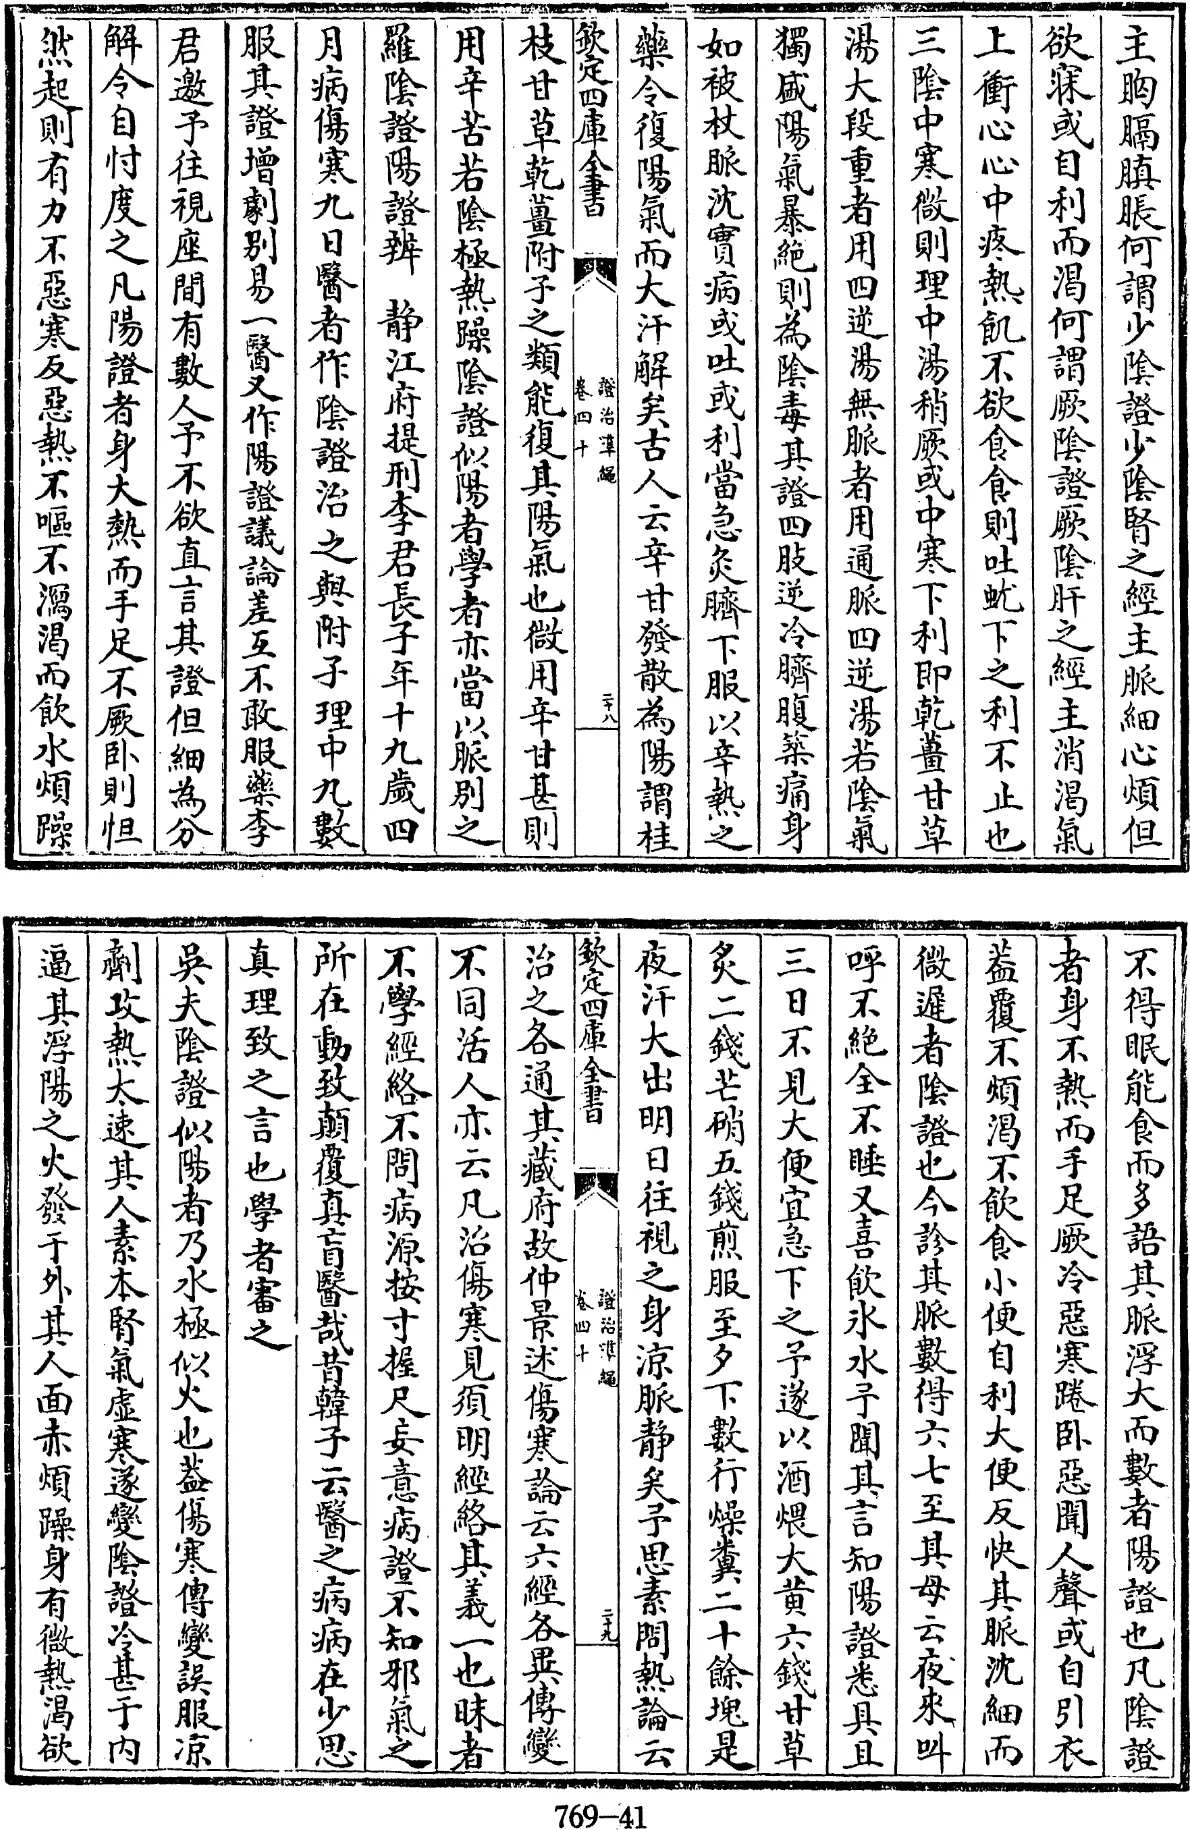 主胸膈䐜脹何謂少陰證少陰腎之經主脈細心煩但
欲寐或自利而渴何謂厥陰證厥陰肝之經主消渴氣
上衝心心中疼熱飢不欲食食則吐蚘下之利不止也
三陰中寒微則理中湯稍厥或中寒下利即乾薑甘草
湯大段重者用四逆湯無脈者用通脈四逆湯若陰氣
獨盛陽氣暴絶則為陰毒其證四肢逆冷臍腹築痛身
如被杖脈沈實病或吐或利當急灸臍下服以辛熱之
藥令復陽氣而大汗解矣古人云辛甘發散為陽謂桂
欽定四庫全書
證治準繩
卷四十
二十八
枝甘草乾薑附子之類能復其陽氣也微用辛甘甚則
用辛苦若陰極熱躁陰證似陽者學者亦當以脈別之
羅陰證陽證辨 静江府提刑李君長子年十九歲四
月病傷寒九日醫者作陰證治之與附子理中丸數
服其證增劇别易一醫又作陽證議論差互不敢服藥李
君邀予往視座間有數人予不欲直言其證但細為分
解令自忖度之凡陽證者身大熱而手足不厥卧則怛
然起則有力不惡寒反惡熱不嘔不瀉渴而飲水煩躁
不得眠能食而多語其脈浮大而數者陽證也凡陰證
者身不熱而手足厥冷惡寒踡卧惡聞人聲或自引衣
葢覆不煩渴不飲食小便自利大便反快其脈沈細而
微遲者陰證也今診其脈數得六七至其母云夜來叫
呼不絶全不睡又喜飲氷水予聞其言知陽證悉具且
三日不見大便宜急下之予遂以酒煨大黄六錢甘草
炙二錢芒硝五錢煎服至夕下數行燥糞二十餘塊是
夜汗大出明日往視之身凉脈静矣予思素問熱論云
欽定四庫全書
證治準繩
卷四十
二十九
治之各通其藏府故仲景述傷寒論云六經各異傳變
不同活人亦云凡治傷寒見須明經絡其義一也昧者
不學經絡不問病源按寸握尺妄意病證不知邪氣之
所在動致顛覆真盲醫哉昔韓子云醫之病病在少思
真理致之言也學者審之
吳夫陰證似陽者乃水極似火也葢傷寒傳變誤服凉
劑攻熱太速其人素本腎氣虛寒遂變陰證冷甚于内
逼其浮陽之火發于外其人面赤煩躁身有微熱渴欲
769–41